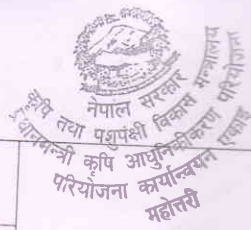 नेपाल सरकार
कृषि तथा पशुपंक्षी विकास मन्त्रालय
प्रधानमन्त्री कृषि आधुनिकीकरण परियोजना
परियोजना कार्यान्वयन एकाई
महोत्तरी